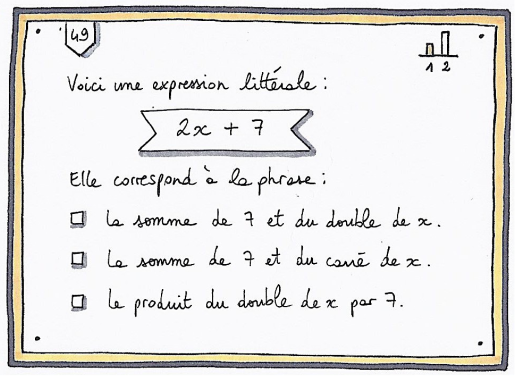 49
1 2
Voici une expression littérale :
2x + 7
Elle correspond à la phrase :
La somme de 7 et du double de x.
La somme de 7 et du carré de x.
Le produit du double de x par 7.